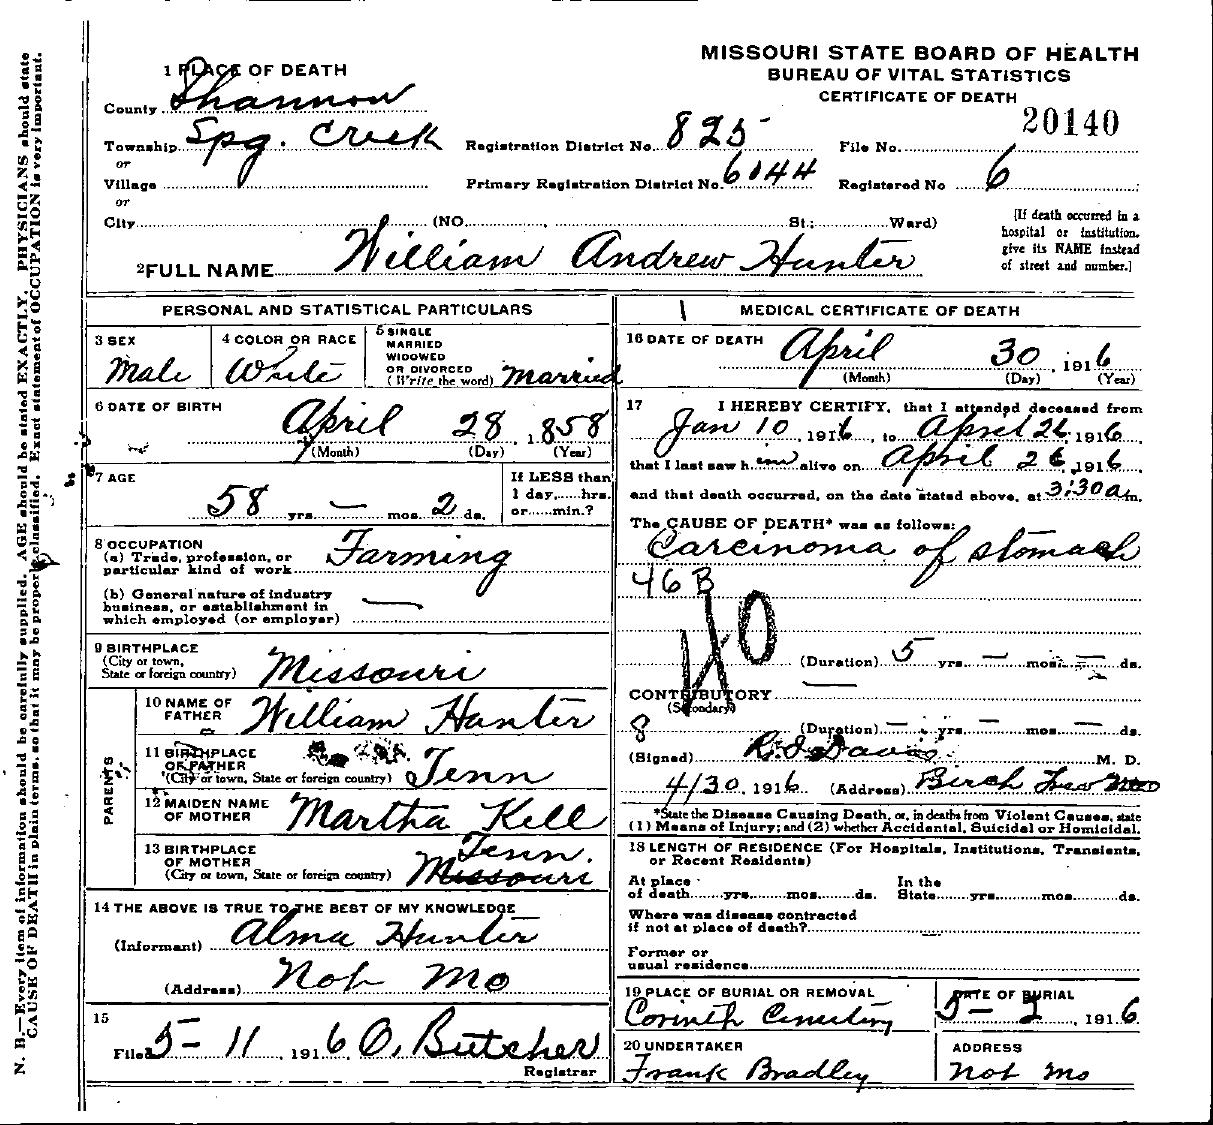 MISSOURI STATE BOARD OF HEALTH
BUREAU OF VITAL STATISTICS
CERTIFICATE OF DEATH
20140
1 PLACE OF DEATH
County Shannon
Township Spg. Creek Registration District No. 825 File No.
or
Village Primary Registration District No. 6044 Registered No 6
or
City (NO. St.; Ward)
[If death occurred in a
hospital or institution,
give its NAME instead
of street and number.]
2 FULL NAME William Andrew Hunter
PERSONAL AND STATISTICAL PARTICULARS
3 SEX
Male
4 COLOR OR RACE
White
5 SINGLE
MARRIED
WIDOWED
OR DIVORCED
(Write the word) Married
6 DATE OF BIRTH
April 28, 1858
(Month) (Day) (Year)
7 AGE
58 yrs. — mos. 2 ds.
If LESS than
1 day,......hrs.
or......min.?
8 OCCUPATION
(a) Trade, profession, or
particular kind of work Farming
(b) General nature of industry
business, or establishment in
which employed (or employer) —
9 BIRTHPLACE
(City or town,
State or foreign country) Missouri
PARENTS
10 NAME OF
FATHER William Hunter
11 BIRTHPLACE
OF FATHER
(City or town, State or foreign country) Tenn
12 MAIDEN NAME
OF MOTHER Martha Kell
13 BIRTHPLACE
OF MOTHER Tenn.
(City or town, State or foreign country) Missouri
14 THE ABOVE IS TRUE TO THE BEST OF MY KNOWLEDGE
(Informant) Alma Hunter
(Address) Not Mo
15
Filed 5-11, 1916 O. Butcher
Registrar
MEDICAL CERTIFICATE OF DEATH
16 DATE OF DEATH April 30, 1916
(Month) (Day) (Year)
17 I HEREBY CERTIFY, that I attended deceased from
Jan 10, 1916, to April 26, 1916,
that I last saw him alive on April 26, 1916,
and that death occurred, on the date stated above, at 3:30 a m.
The CAUSE OF DEATH* was as follows:
Carcinoma of stomach
46 B
40
(Duration) 5 yrs. — mos. — ds.
CONTRIBUTORY —
(Secondary)
8 (Duration) — yrs. — mos. — ds.
(Signed) Davis M. D.
4/30, 1916 (Address) Birch Tree Mo
*State the Disease Causing Death, or, in deaths from Violent Causes, state
(1) Means of Injury; and (2) whether Accidental, Suicidal or Homicidal.
18 LENGTH OF RESIDENCE (For Hospitals, Institutions, Transients,
or Recent Residents)
At place In the
of death......yrs......mos......ds. State......yrs......mos......ds.
Where was disease contracted
if not at place of death?
Former or
usual residence
19 PLACE OF BURIAL OR REMOVAL
Corinth Cemetery
DATE OF BURIAL
5-2, 1916
20 UNDERTAKER
Frank Bradley
ADDRESS
Not Mo
N. B.—Every item of information should be carefully supplied. AGE should be stated EXACTLY. PHYSICIANS should state
CAUSE OF DEATH in plain terms, so that it may be properly classified. Exact statement of OCCUPATION is very important.